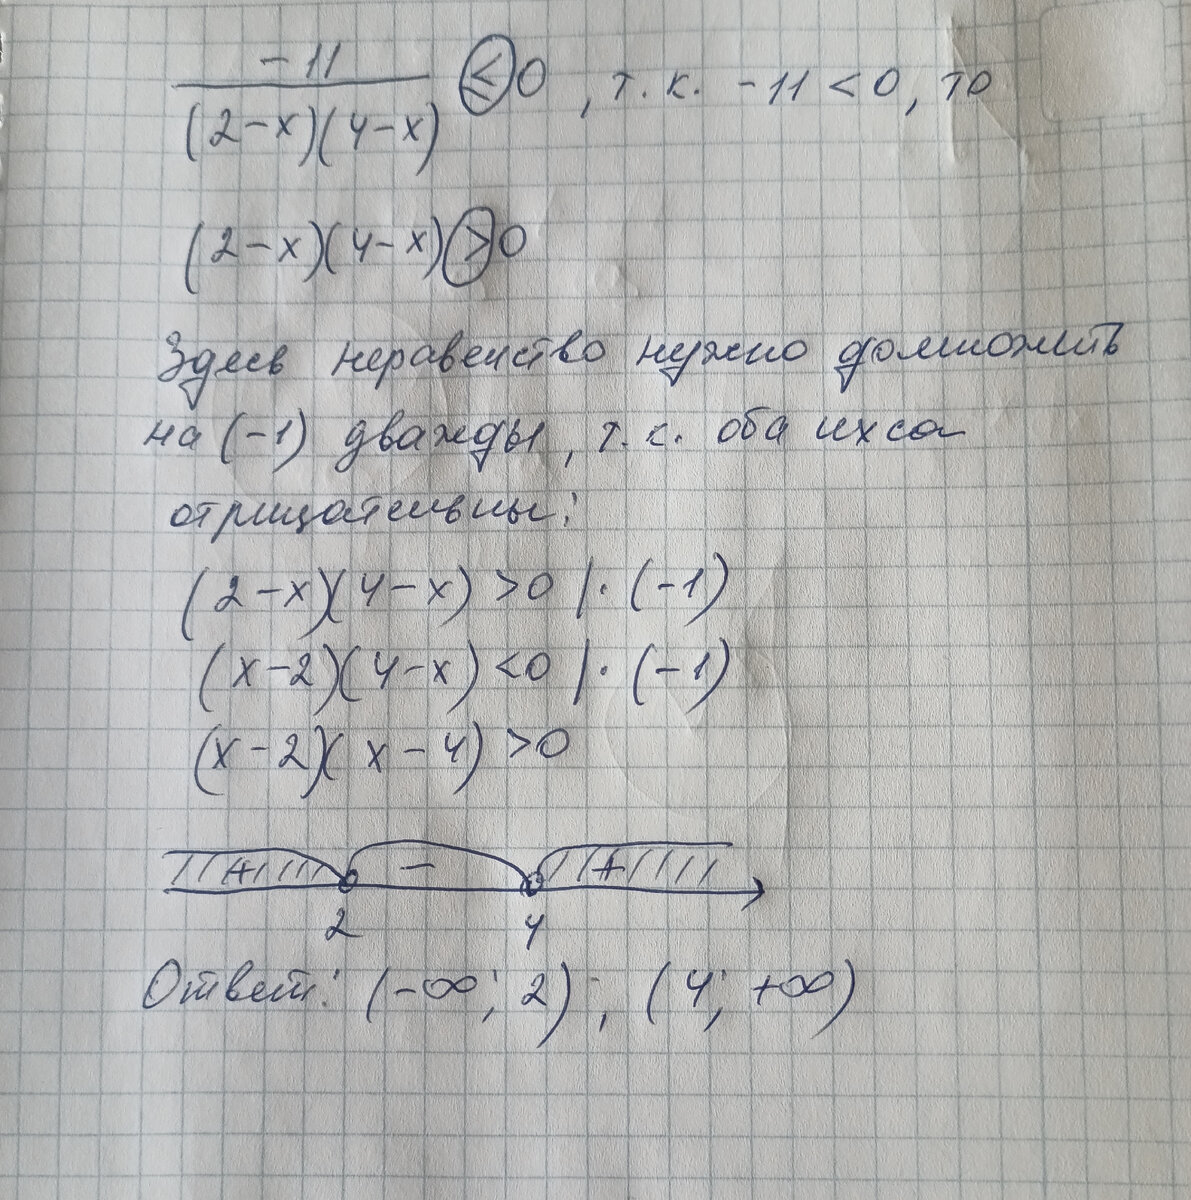 -11
(2-x)(4-x) ≤ 0, т.к. -11 < 0, то
(2-x)(4-x) > 0
Здесь неравенство нужно домножить
на (-1) дважды, т.к. оба икса
отрицательны:
(2-x)(4-x) > 0 | · (-1)
(x-2)(4-x) < 0 | · (-1)
(x-2)(x-4) > 0
+ - +
2 4
Ответ: (-∞; 2); (4; +∞)